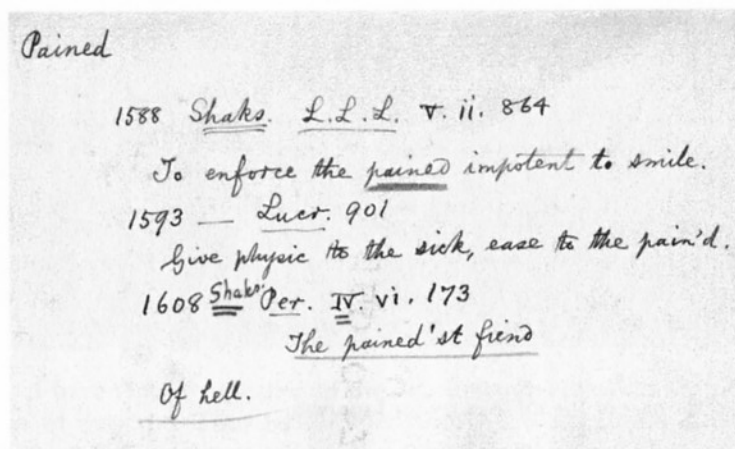 Pained
1588 Shaks. L.L.L. V. ii. 864
To enforce the pained impotent to smile.
1593 — Lucr. 901
Give physic to the sick, ease to the pain'd.
1608 Shaks. Per. IV vi. 173
The pained'st fiend
Of hell.